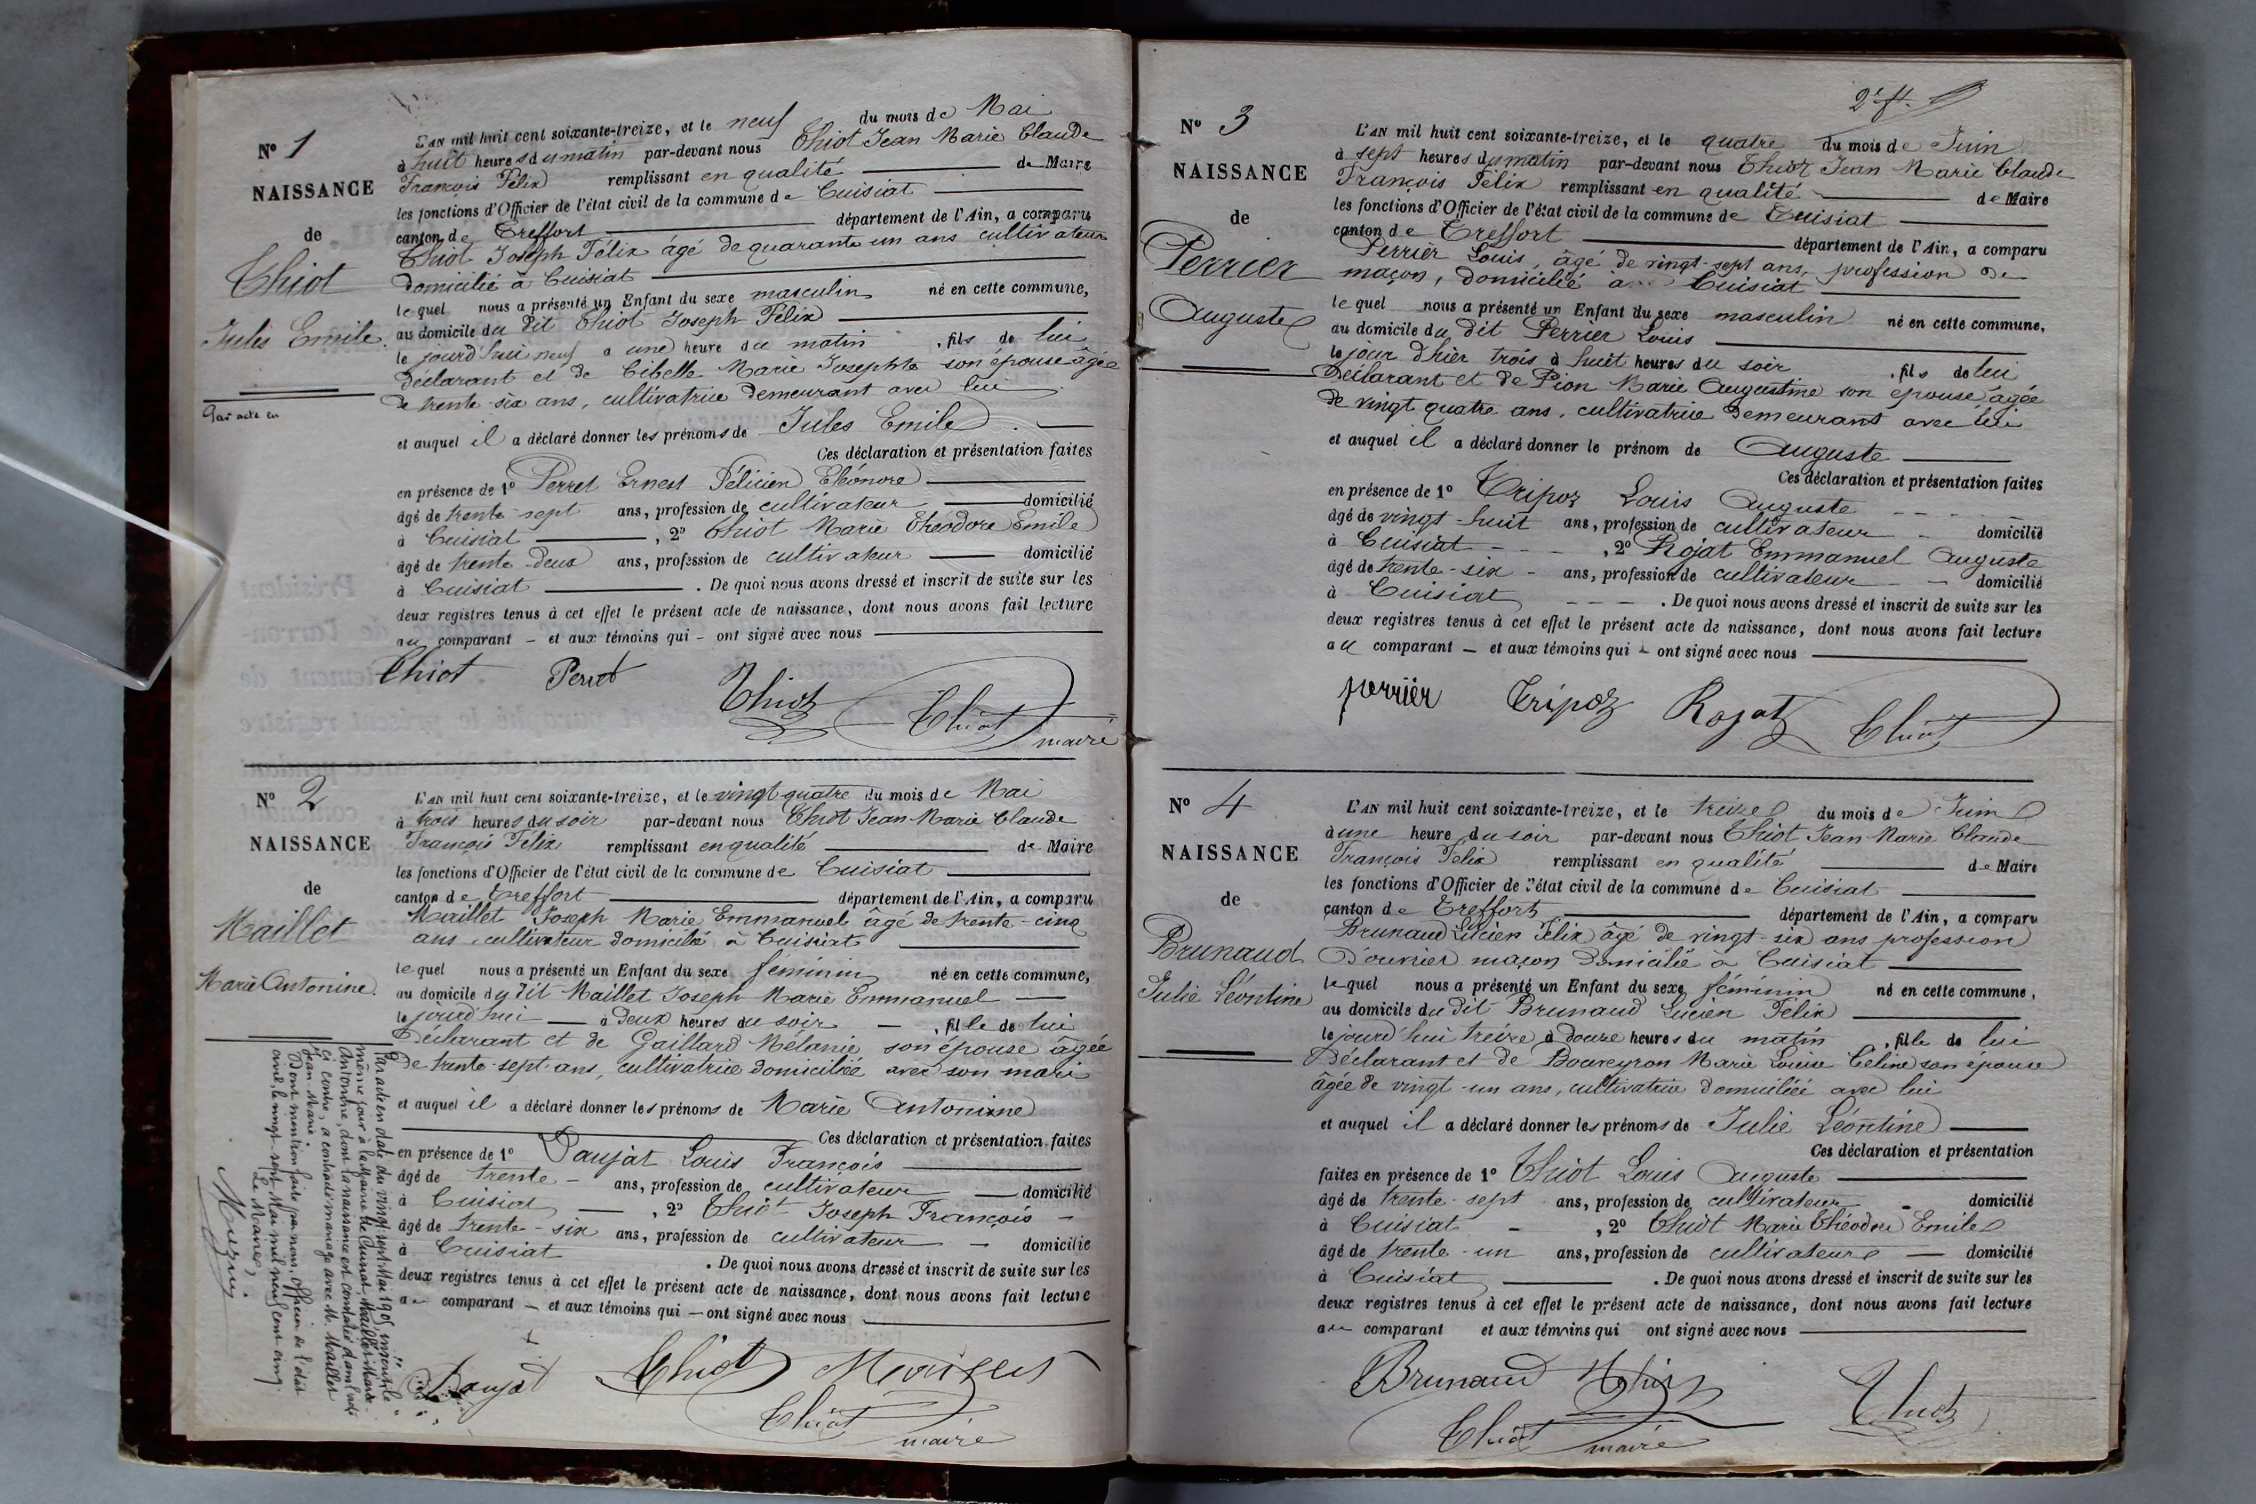 N° 1
NAISSANCE
de
Thiot
Jules Emile.
Par acte en
L'AN mil huit cent soixante-treize, et le neuf du mois de Mai
à huit heures du matin par-devant nous Thiot Jean Marie Claude
François Félix remplissant en qualité de Maire
les fonctions d'Officier de l'état civil de la commune de Cuisiat
canton de Treffort département de l'Ain, a comparu
Thiot Joseph Félix âgé de quarante un ans cultivateur
domicilié à Cuisiat
lequel nous a présenté un Enfant du sexe masculin né en cette commune,
au domicile du dit Thiot Joseph Félix
le jourd'hui neuf à une heure du matin , fils de lui
déclarant et de Cibelle Marie Josephte son épouse âgée
de trente-six ans, cultivatrice demeurant avec lui
et auquel il a déclaré donner les prénoms de Jules Emile.
Ces déclaration et présentation faites
en présence de 1° Perret Ernest Félicien Eléonore
âgé de trente-sept ans, profession de cultivateur domicilié
à Cuisiat , 2° Thiot Marie Théodore Emile
âgé de trente-deux ans, profession de cultivateur domicilié
à Cuisiat . De quoi nous avons dressé et inscrit de suite sur les
deux registres tenus à cet effet le présent acte de naissance, dont nous avons fait lecture
au comparant - et aux témoins qui - ont signé avec nous
Thiot Perret Thiot Thiot
maire
N° 2
NAISSANCE
de
Maillet
Marie Antonine.
L'AN mil huit cent soixante-treize, et le vingt quatre du mois de Mai
à trois heures du soir par-devant nous Thiot Jean-Marie Claude
François Félix remplissant en qualité de Maire
les fonctions d'Officier de l'état civil de la commune de Cuisiat
canton de Treffort département de l'Ain, a comparu
Maillet Joseph Marie Emmanuel âgé de trente-cinq
ans, cultivateur domicilié à Cuisiat
lequel nous a présenté un Enfant du sexe féminin né en cette commune,
au domicile du dit Maillet Joseph Marie Emmanuel
le jourd'hui à deux heures du soir - , fille de lui
déclarant et de Gaillard Mélanie son épouse âgée
de trente-sept ans, cultivatrice domiciliée avec son mari
et auquel il a déclaré donner les prénoms de Marie Antonine
Ces déclaration et présentation faites
en présence de 1° Paujat Louis François
âgé de trente - ans, profession de cultivateur domicilié
à Cuisiat , 2° Thiot Joseph François -
âgé de trente-six ans, profession de cultivateur - domicilié
à Cuisiat . De quoi nous avons dressé et inscrit de suite sur les
deux registres tenus à cet effet le présent acte de naissance, dont nous avons fait lecture
au comparant - et aux témoins qui - ont signé avec nous
Thiot
Thiot
maire
Par acte en date du vingt-sept Mai 1905 inscrit le
même jour à la Mairie de Cuisiat, Maillet Marie-
Antonine, dont la naissance est constatée dans l'acte
ci-contre, a contracté mariage avec M. Maillet
Jean-Marie.
Dont mention faite par nous, officier de l'état
civil, le vingt-sept Mai mil neuf cent cinq.
Le Maire,
2e f.
N° 3
NAISSANCE
de
Perrier
Auguste
L'AN mil huit cent soixante-treize, et le quatre du mois de Juin
à sept heures du matin par-devant nous Thiot Jean Marie Claude
François Félix remplissant en qualité de Maire
les fonctions d'Officier de l'état civil de la commune de Cuisiat
canton de Treffort département de l'Ain, a comparu
Perrier Louis, âgé de vingt-sept ans, profession de
maçon, domicilié à Cuisiat
lequel nous a présenté un Enfant du sexe masculin né en cette commune,
au domicile du dit Perrier Louis
le jour d'hier trois à huit heures du soir , fils de lui
déclarant et de Pion Marie Augustine son épouse âgée
de vingt quatre ans, cultivatrice demeurant avec lui
et auquel il a déclaré donner le prénom de Auguste
Ces déclaration et présentation faites
en présence de 1° Tripoz Louis Auguste
âgé de vingt-huit ans, profession de cultivateur - domicilié
à Cuisiat , 2° Rojat Emmanuel Auguste
âgé de trente-six - ans, profession de cultivateur - domicilié
à Cuisiat . De quoi nous avons dressé et inscrit de suite sur les
deux registres tenus à cet effet le présent acte de naissance, dont nous avons fait lecture
au comparant - et aux témoins qui - ont signé avec nous
perrier Tripoz Rojat Thiot
N° 4
NAISSANCE
de
Brunaud
Julie Léontine
L'AN mil huit cent soixante-treize, et le treize du mois de Juin
à une heure du soir par-devant nous Thiot Jean Marie Claude
François Félix remplissant en qualité de Maire
les fonctions d'Officier de l'état civil de la commune de Cuisiat
canton de Treffort département de l'Ain, a comparu
Brunaud Lucien Félix âgé de vingt-six ans profession
d'ouvrier maçon domicilié à Cuisiat
lequel nous a présenté un Enfant du sexe féminin né en cette commune,
au domicile du dit Brunaud Lucien Félix
le jourd'hui treize à douze heures du matin , fille de lui
déclarant et de Bouveyron Marie Louise Céline son épouse
âgée de vingt-un ans, cultivatrice domiciliée avec lui
et auquel il a déclaré donner les prénoms de Julie Léontine
Ces déclaration et présentation
faites en présence de 1° Thiot Louis Auguste
âgé de trente-sept ans, profession de cultivateur - domicilié
à Cuisiat - , 2° Thiot Marie Théodore Emile
âgé de trente-un ans, profession de cultivateur domicilié
à Cuisiat . De quoi nous avons dressé et inscrit de suite sur les
deux registres tenus à cet effet le présent acte de naissance, dont nous avons fait lecture
au comparant et aux témoins qui ont signé avec nous
Brunaud Thiot Thiot
Thiot maire